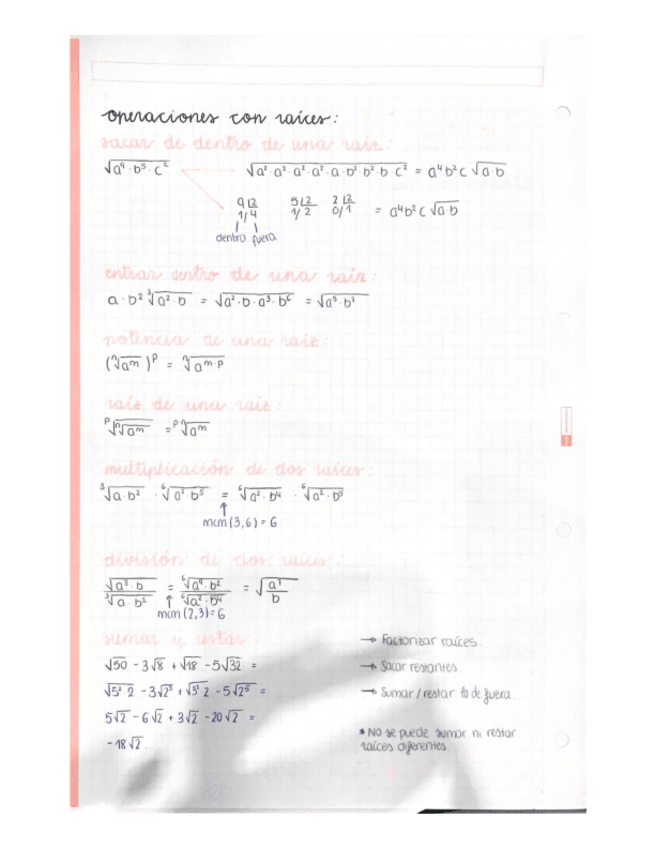 operaciones con raíces:
sacar de dentro de una raíz:
√(a⁹·b⁵·c²) √(a²·a²·a²·a²·a·b²·b²·b·c²) = a⁴b²c √(a·b)
9|2 5|2 2|2
1/4 1/2 0/1 = a⁴b²c √(a b)
dentro fuera
entrar dentro de una raíz:
a·b² ³√(a²·b) = √(a²·b·a³·b⁶) = √(a⁵·b⁷)
potencia de una raíz:
(ⁿ√(aᵐ))ᵖ = ⁿ√(aᵐ·ᵖ)
raíz de una raíz:
ᵖ√(ⁿ√(aᵐ)) = ᵖ·ⁿ√(aᵐ)
multiplicación de dos raíces:
³√(a·b²) · ⁶√(a² b⁵) = ⁶√(a²·b⁴) · ⁶√(a²·b⁵)
↑
mcm (3,6) = 6
división de dos raíces:
√(a³·b) / ³√(a·b²) = ⁶√(a⁹·b²) / ⁶√(a²·b⁴) = √(a⁷/b)
↑
mcm (2,3) = 6
sumar y restar:
√50 - 3√8 + √18 - 5√32 =
√(5² 2) - 3√2³ + √(3² 2) - 5√2⁵ =
5√2 - 6√2 + 3√2 - 20√2 =
-18√2.
→ Factorizar raíces.
→ Sacar restantes
→ Sumar/restar lo de fuera.
* No se puede sumar ni restar
raíces diferentes.